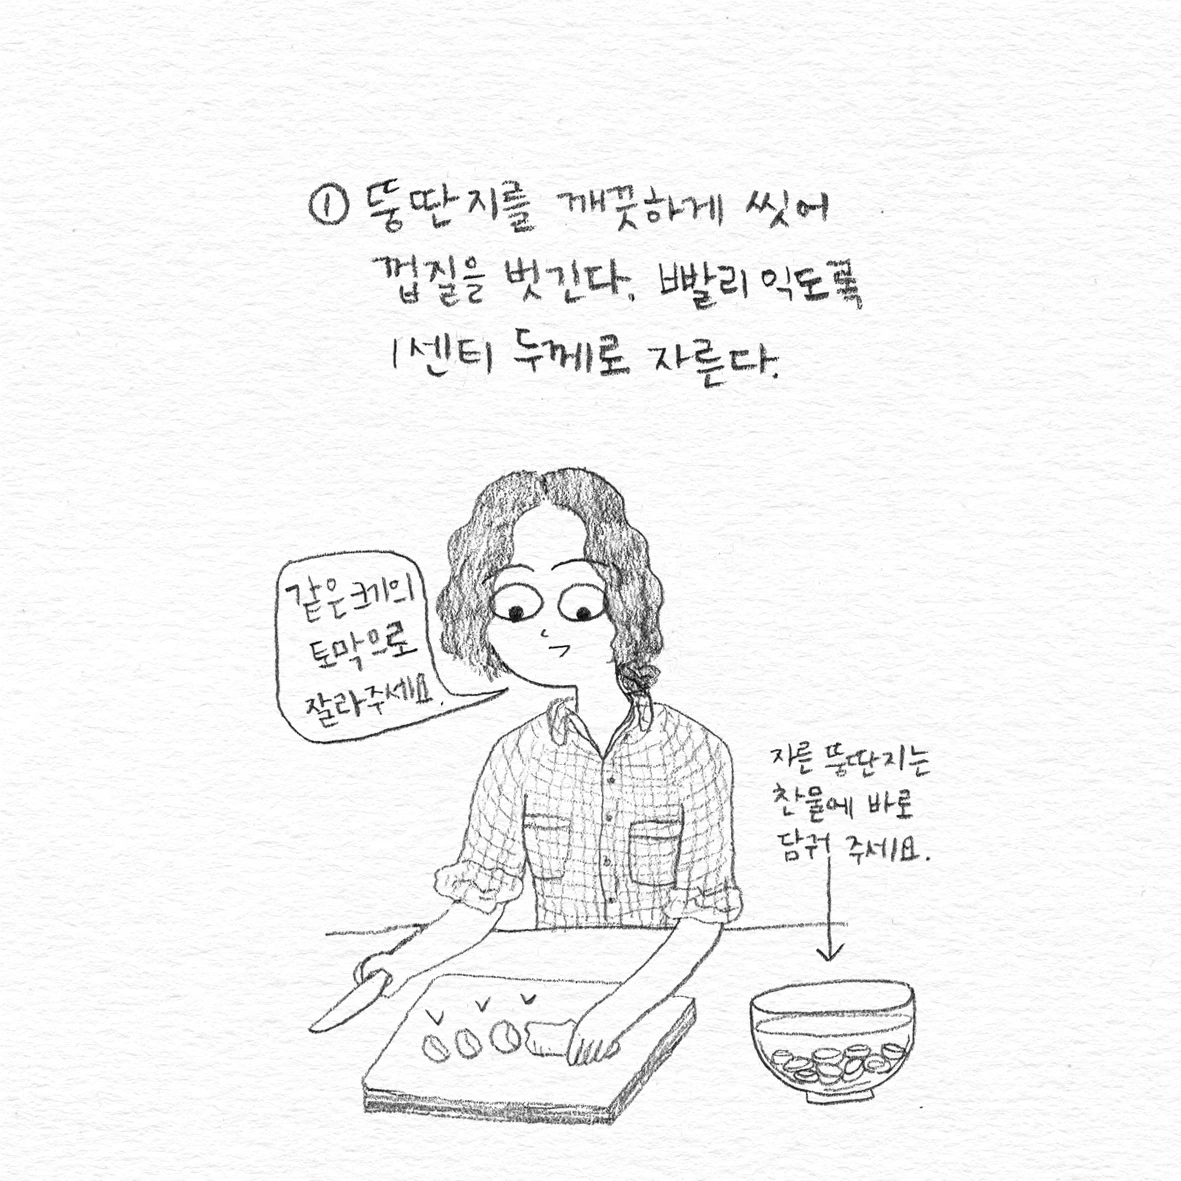 ① 뚱딴지를 깨끗하게 씻어
껍질을 벗긴다. 빨리 익도록
1센티 두께로 자른다.
같은 크기의
토막으로
잘라주세요.
자른 뚱딴지는
찬물에 바로
담궈 주세요.